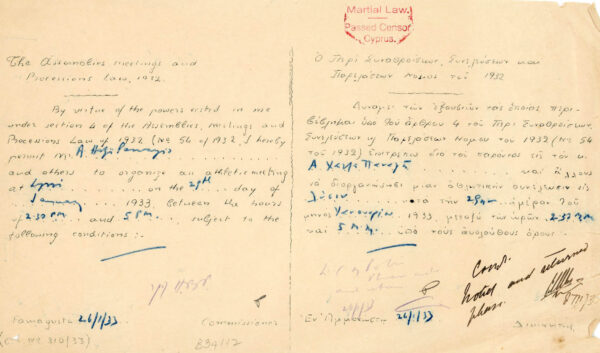 Martial Law.
Passed Censor
Cyprus.
The Assemblies, meetings and
Processions Law, 1932.
By virtue of the powers vested in me
under section 4 of the Assemblies, meetings and
Processions Law of 1932 (No 54 of 1932, I hereby
permit M. A. Hji
and others to organize an athletic meeting
at Lysi on the 29th day of
January 1933, between the hours
of 2.30 P.M. and 5 P.M., subject to the
following conditions :-
Famagusta 26/1/33
Commissioner
834/12
Ὁ Περὶ Συναθροίσεων, Συνελεύσεων και
Παρελάσεων Νομος τοῦ 1932
Δυνάμει τῶν ἐξουσιῶν τὰς ὁποίας περι-
βέβλημαι ὑπὸ τοῦ ἄρθρου 4 τοῦ Περὶ Συναθροίσεων,
Συνελεύσεων Παρελάσεων Νομου του 1932 (No 54
του 1932) ἐπιτρέπω δια του παρόντος εἰς τὸν κ.
Α Χατζη Παναγῆ και ἄλλους
νὰ διοργανώσωσι μιαν ἀθλητικην συνέλευσιν εἰς
Λύσην κατὰ τὴν 29ην ἡμέραν τοῦ
μηνος Ιανουαρίου 1933, μεταξὺ τῶν ὡρῶν 2.30 μ.μ.
καὶ 5 μ.μ. ὑπὸ τους ἀκολούθους ὅρους
Noted and returned
please.
Ἐν Ἀμμοχώστῳ 26/1/33
Διοικητής